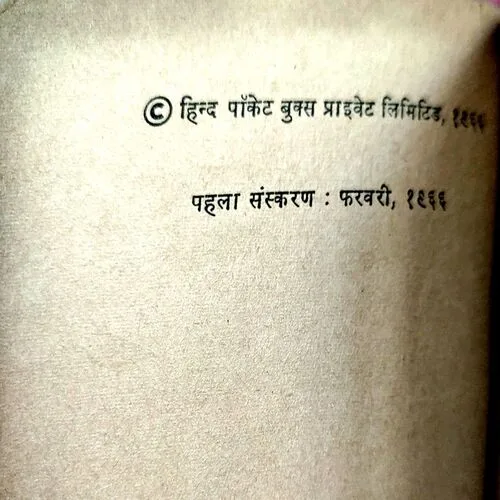 © हिन्द पॉकेट बुक्स प्राइवेट लिमिटिड, १९६६
पहला संस्करण : फरवरी, १९६६